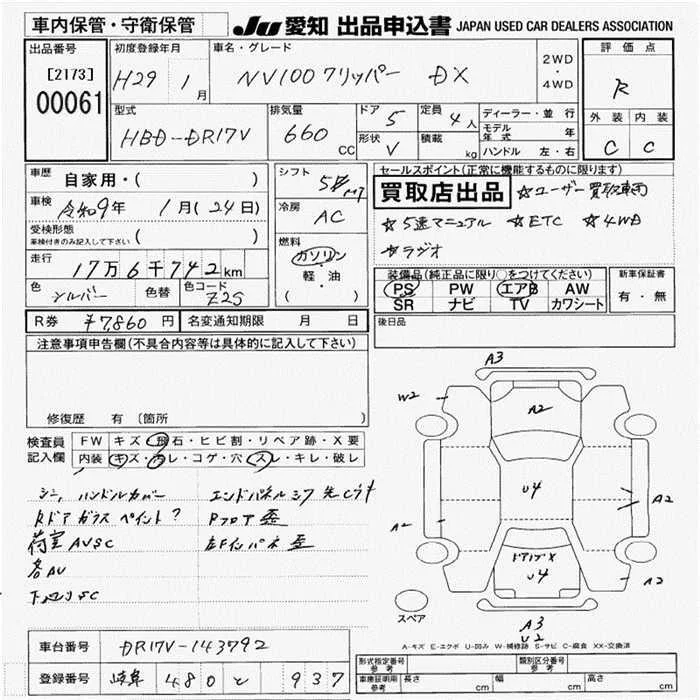 車内保管・守衛保管
JU 愛知 出品申込書 JAPAN USED CAR DEALERS ASSOCIATION
出品番号
[2173]
00061
初度登録年月
H29 1月
車名・グレード
NV100クリッパー DX
2WD
・
4WD
評価点
R
外装 内装
C C
型式
HBD-DR17V
排気量
660 CC
ドア 5
形状 V
定員 4人
積載 kg
ディーラー・並行
モデル年式 年
ハンドル 左・右
車歴
自家用・( )
車検
令和9年 1月(24日)
受検形態
車検付きのみ記入して下さい ( )
走行
17万6千742km
色
シルバー
色替
色コード
Z2S
シフト
5 MT
冷房
AC
燃料
ガソリン
・
軽・油
( )
セールスポイント(正常に機能するものに限ります)
買取店出品 ☆ユーザー買取車両
☆5速マニュアル ☆ETC ☆4WD
☆ラジオ
装備品(純正品に限り○をつけてください)
PS PW エアB AW
SR ナビ TV カワシート
新車保証書
有・無
後日品
R券 ¥7,860円
名変通知期限 月 日
注意事項申告欄(不具合内容等は具体的に記入して下さい)
修復歴 有 〔箇所 〕
検査員
記入欄
FW キズ・飛石・ヒビ割・リペア跡・X要
内装 キズ・ヨレ・コゲ・穴・スレ・キレ・破レ
シミ, ハンドルカバー
Rドアガラスペイント?
荷室AVSC
各AV
下廻りSC
エンドパネル
Pフロア歪
左Fインパネ歪
A3
W2
A2
U4
A2
A2
ドアノブX
U4
A2
スペア
A3
U2
A-キズ E-エクボ U-凹み W-補修跡 S-サビ C-腐食 XX-交換済
車台番号 DR17V-143792
登録番号 岐阜 480 と 937
形式指定番号
参考
類別区分番号
参考
車庫証明用
参考
長さ cm 幅 cm 高さ cm